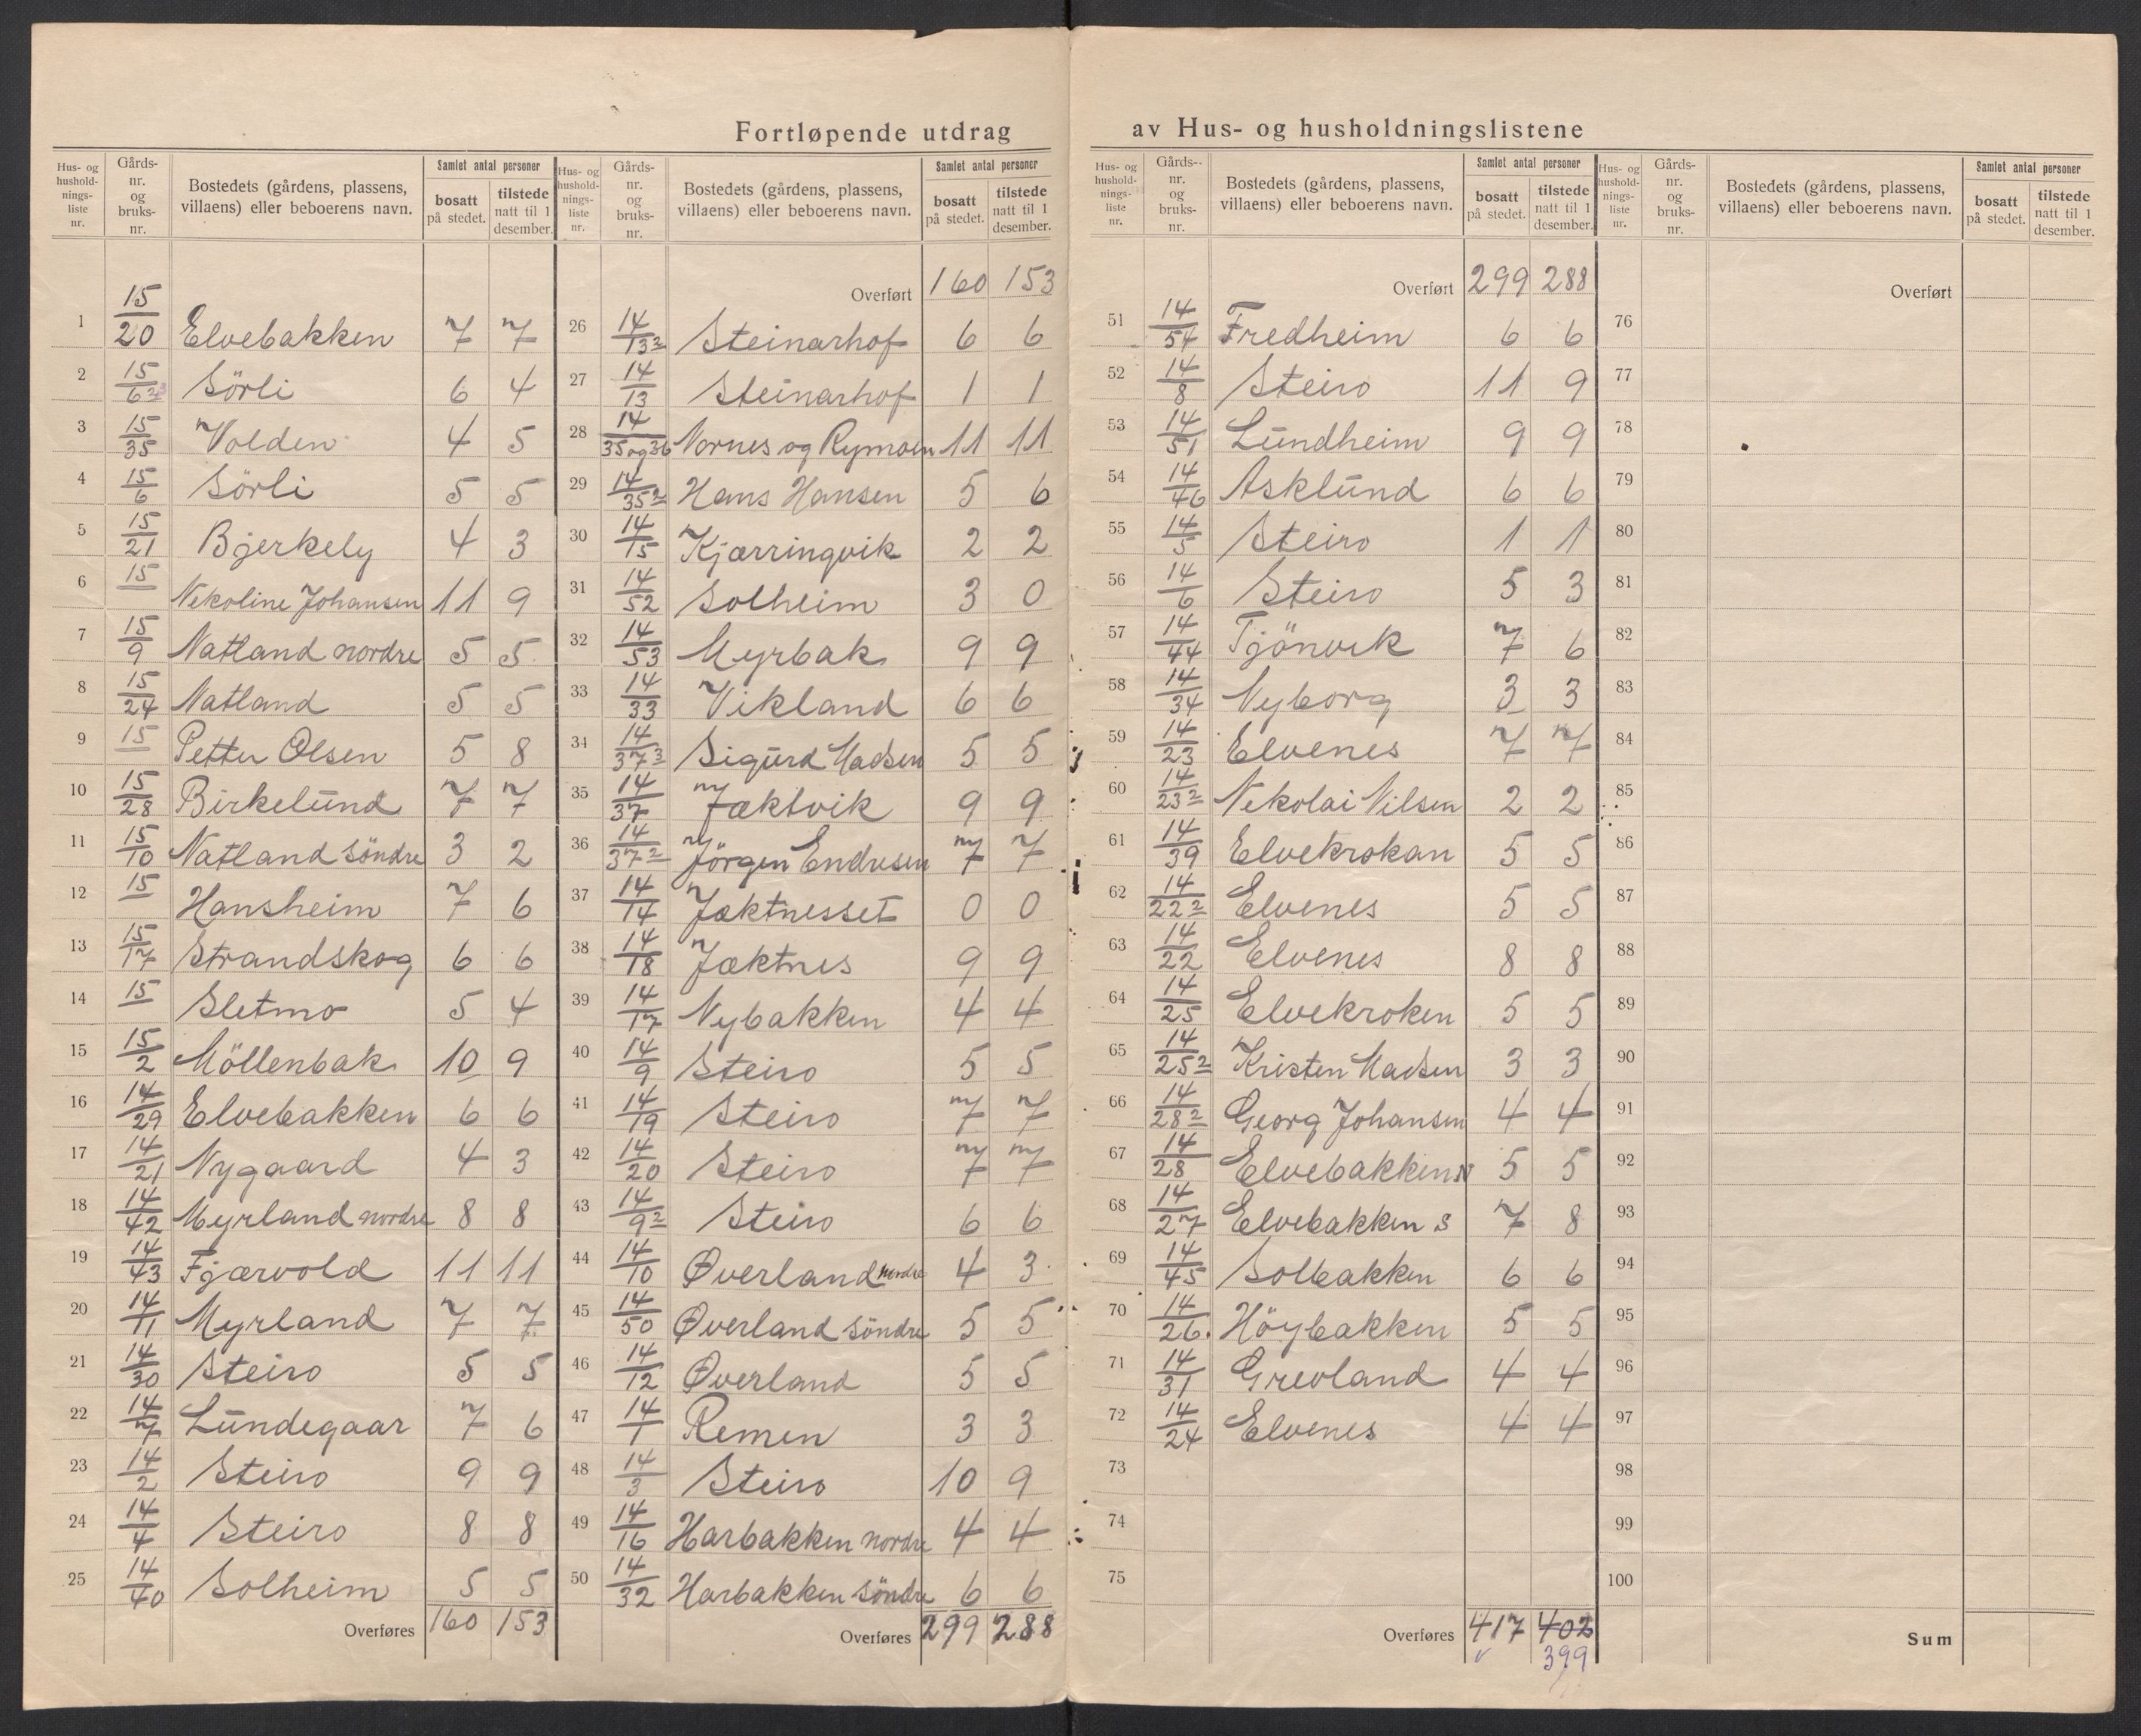 Fortløpende utdrag av Hus- og husholdningslistene
Hus- og husholdningsliste nr. | Gårds-nr. og bruks-nr. | Bostedets (gårdens, plassens, villaens) eller beboerens navn. | Samlet antal personer | bosatt på stedet. | tilstede natt til 1 desember.
1 15/20 Elvebakken 7 7
2 15/6 Sörli 6 4
3 15/35 Volden 4 5
4 15/6 Sörli 5 5
5 15/21 Bjerkely 4 3
6 15/— Nekoline Johansen 11 9
7 15/9 Natland nordre 5 5
8 15/24 Natland 5 5
9 15/— Petter Olsen 5 8
10 15/28 Birkelund 7 7
11 15/10 Natland söndre 3 2
12 15/— Hansheim 7 6
13 15/17 Strandskog 6 6
14 15/— Sletmo 5 4
15 15/2 Möllenbak 10 9
16 14/29 Elvebakken 6 6
17 14/21 Nygaard 4 3
18 14/42 Myrland nordre 8 8
19 14/43 Fjærvold 11 11
20 14/11 Myrland 7 7
21 14/30 Steiro 5 5
22 14/7 Lundegaar 7 6
23 14/2 Steiro 9 9
24 14/4 Steiro 8 8
25 14/40 Solheim 5 5
Overføres 160 153
Hus- og husholdningsliste nr. | Gårds-nr. og bruks-nr. | Bostedets (gårdens, plassens, villaens) eller beboerens navn. | Samlet antal personer | bosatt på stedet. | tilstede natt til 1 desember.
Overført 160 153
26 14/13² Steinarhof 6 6
27 14/13 Steinarhof 1 1
28 14/35og36 Vornes og Rymoen 11 11
29 14/35² Hans Hansen 5 6
30 14/15 Kjærringvik 2 2
31 14/52 Solheim 3 0
32 14/53 Myrbak 9 9
33 14/33 Vikland 6 6
34 14/37³ Sigurd Madsen 5 5
35 14/37 Jæktvik 9 9
36 14/37² Jörgen Endresen 7 7
37 14/14 Jæktnesset 0 0
38 14/18 Jæktnes 9 9
39 14/17 Nybakken 4 4
40 14/9 Steiro 5 5
41 14/19 Steiro 7 7
42 14/20 Steiro 7 7
43 14/9² Steiro 6 6
44 14/10 Øverland nordre 4 3
45 14/50 Øverland söndre 5 5
46 14/12 Øverland 5 5
47 14/1 Remen 3 3
48 14/3 Steiro 10 9
49 14/16 Harbakken nordre 4 4
50 14/32 Harbakken söndre 6 6
Overføres 299 288
Hus- og husholdningsliste nr. | Gårds-nr. og bruks-nr. | Bostedets (gårdens, plassens, villaens) eller beboerens navn. | Samlet antal personer | bosatt på stedet. | tilstede natt til 1 desember.
Overført 299 288
51 14/54 Fredheim 6 6
52 14/8 Steiro 11 9
53 14/51 Lundheim 9 9
54 14/46 Asklund 6 6
55 14/5 Steiro 1 1
56 14/6 Steiro 5 3
57 14/44 Tjönvik 7 6
58 14/34 Nyborg 3 3
59 14/23 Elvenes 7 7
60 14/23² Nekolai Nilsen 2 2
61 14/39 Elvekrokan 5 5
62 14/22² Elvenes 5 5
63 14/22 Elvenes 8 8
64 14/25 Elvekroken 5 5
65 14/25² Kristen Madsen 3 3
66 14/28² Georg Johansen 4 4
67 14/28 Elvebakken N 5 5
68 14/27 Elvebakken S 7 8
69 14/45 Solbakken 6 6
70 14/26. Höybakken 5 5
71 14/31 Grevland 4 4
72 14/24 Elvenes 4 4
73
74
75
Overføres 417 402
399
Hus- og husholdningsliste nr. | Gårds-nr. og bruks-nr. | Bostedets (gårdens, plassens, villaens) eller beboerens navn. | Samlet antal personer | bosatt på stedet. | tilstede natt til 1 desember.
Overført
76
77
78
79
80
81
82
83
84
85
86
87
88
89
90
91
92
93
94
95
96
97
98
99
100
Sum